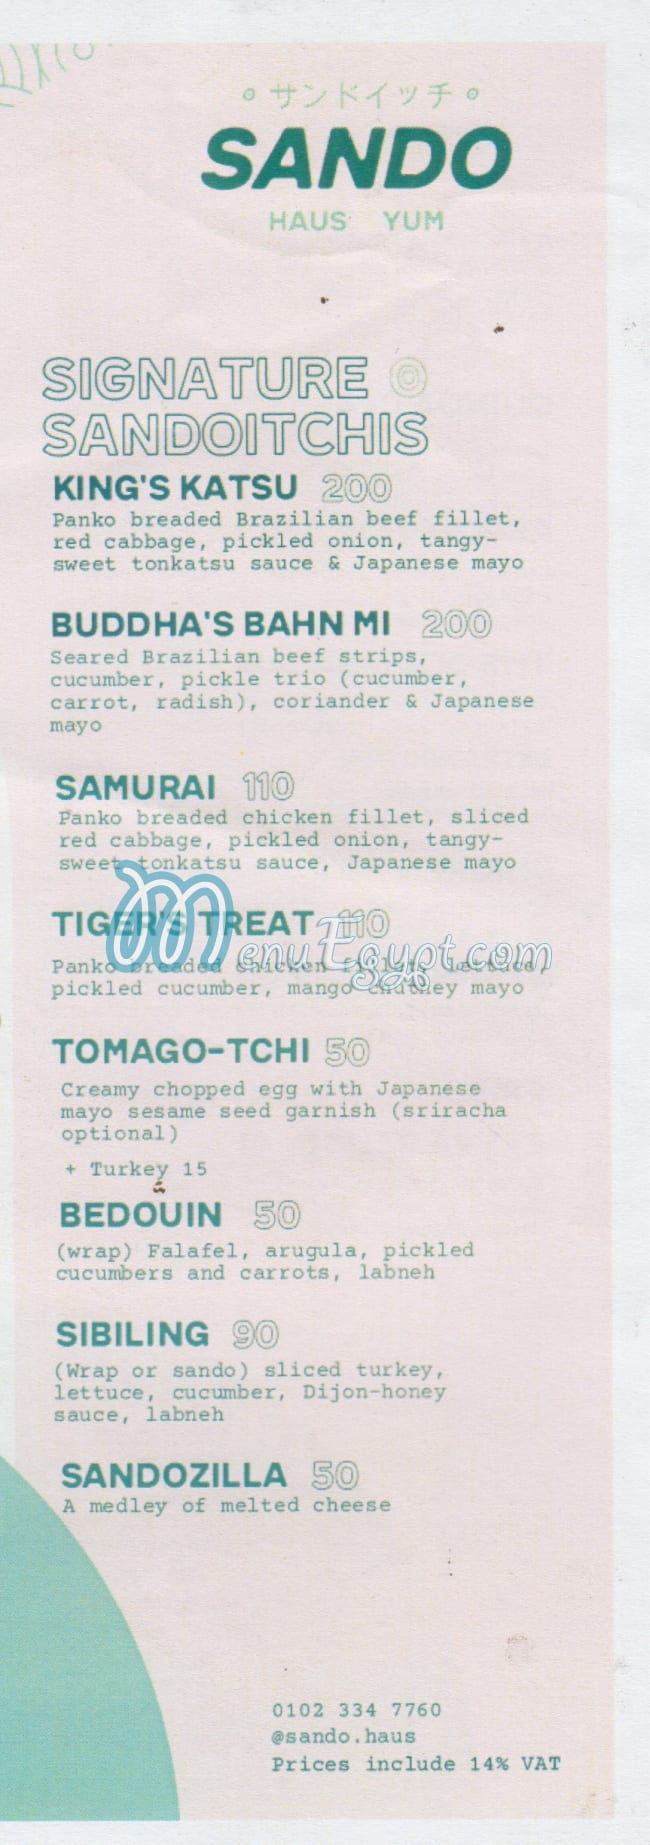 サンドイッチ
SANDO
HAUS YUM
SIGNATURE
SANDOITCHIS
KING'S KATSU 200
Panko breaded Brazilian beef fillet,
red cabbage, pickled onion, tangy-
sweet tonkatsu sauce & Japanese mayo
BUDDHA'S BAHN MI 200
Seared Brazilian beef strips,
cucumber, pickle trio (cucumber,
carrot, radish), coriander & Japanese
mayo
SAMURAI 110
Panko breaded chicken fillet, sliced
red cabbage, pickled onion, tangy-
sweet tonkatsu sauce, Japanese mayo
TIGER'S TREAT 110
MenuEgypt.com
Panko breaded chicken fillet, lettuce,
pickled cucumber, mango chutney mayo
TOMAGO-TCHI 50
Creamy chopped egg with Japanese
mayo sesame seed garnish (sriracha
optional)
+ Turkey 15
BEDOUIN 50
(wrap) Falafel, arugula, pickled
cucumbers and carrots, labneh
SIBILING 90
(Wrap or sando) sliced turkey,
lettuce, cucumber, Dijon-honey
sauce, labneh
SANDOZILLA 50
A medley of melted cheese
0102 334 7760
@sando.haus
Prices include 14% VAT